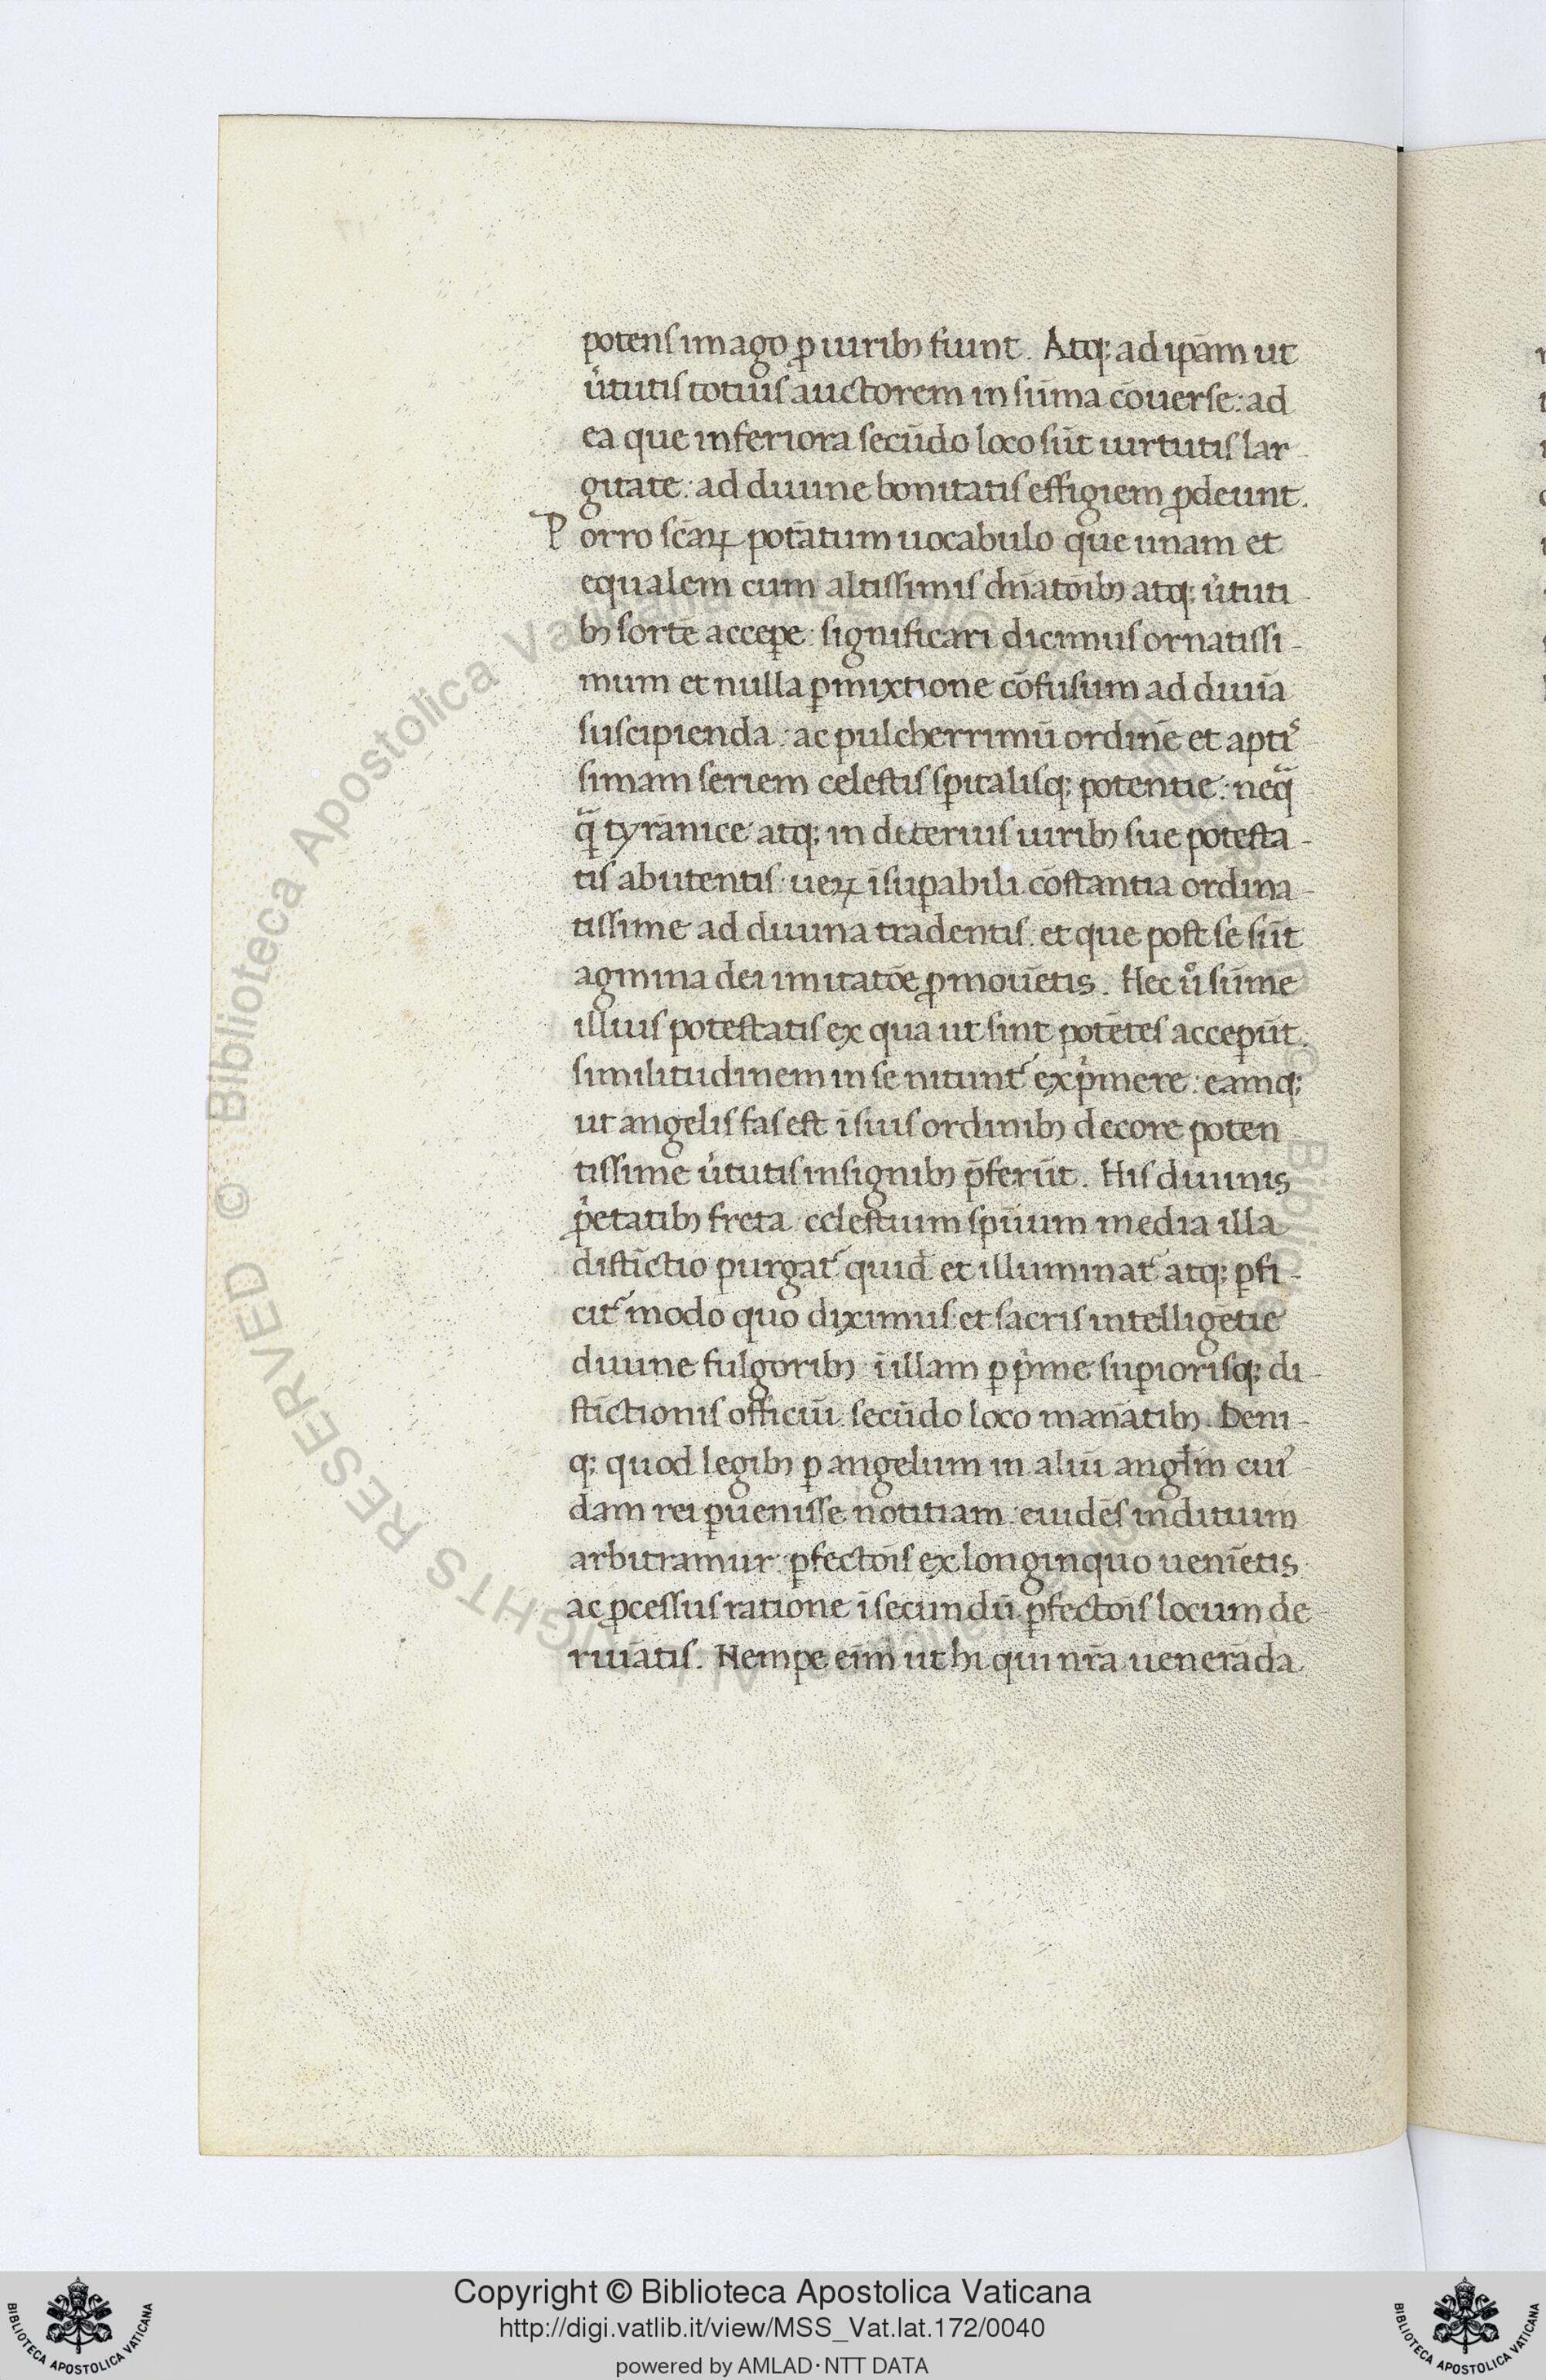 potens imago ꝓ uiribꝫ fiunt. Atq; ad ip̄am ut
u̾tutis totius auctorem in sūma cōuerse: ad
ea que inferiora secūdo loco sūt uirtutis lar-
gitate: ad diuine bonitatis effigiem ꝓdeunt.
Porro sc̄aꝝ potātum uocabulo que unam et
equalem cum altissimis dn̄atoībꝫ atq; u̾tuti-
bꝫ sortē acceꝑe: significari dicimus ornatissi-
mum et nulla ꝑmixtione cōfusum ad diuīa
suscipienda: ac pulcherrimū ordinē et aptis-
simam seriem celestis sp̄italisq; potentie: neq̄
q̄ tyrānice atq; in deterius uiribꝫ sue potesta-
tis abutentis: ueꝝ īsuꝑabili cōstantia ordina-
tissime ad diuina tradentis: et que post se sūt
agmina dei imitatōe ꝓmouētis. Hec uͦ sūme
illius potestatis ex qua ut sint potētes acceꝑūt.
similitudinem in se nitunt᷑ exp͛mere: eamq;
ut angelis fas est ī suis ordinibꝫ decore poten
tissime u̾tutis insignibꝫ p̄ferūt. His diuinis
ꝓp͛etatibꝫ freta celestium sp̄iuum media illa
distīctio purgat᷑ quid̄ et illuminat᷑ atq; ꝑfi-
cit᷑ modo quo diximus: et sacris intelligētie
diuine fulgoribꝫ ī illam ꝑ p͛me suꝑiorisq; di-
stīctionis officiū secūdo loco manātibꝫ. Deni-
q; quod legibꝫ ꝑ angelum in aliū angl̄m cui᷒-
dam rei ꝑuenisse notitiam: euidēs inditium
arbitramur ꝑfectōis ex longinquo uenīetis
ac ꝓcessus ratione ī secundū ꝑfectōis locum de
riuātis. Nempe eīm ut hi qui nr̄a uenerāda
Copyright © Biblioteca Apostolica Vaticana
http://digi.vatlib.it/view/MSS_Vat.lat.172/0040
powered by AMLAD·NTT DATA
BIBLIOTECA APOSTOLICA VATICANA
BIBLIOTECA APOSTOLICA VATICANA